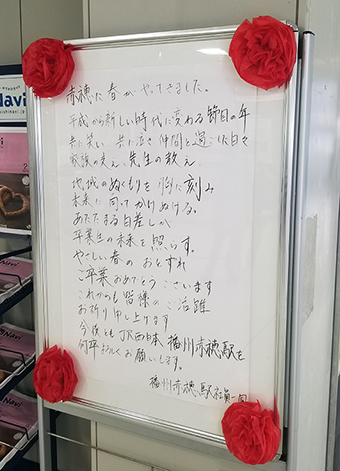 Navi
赤穂に春がやってきました。
平成から新しい時代に変わる節目の年
共に笑い 共に泣き 仲間と過ごした日々
家族の支え 先生の教え
地域のぬくもりを胸に刻み
未来に向ってかけぬける。
あたたまる日差しが
卒業生の未来を照らす。
やさしい春の おとずれ
ご卒業おめでとうございます
これからも皆様のご活躍
お祈り申し上げます
今後とも JR西日本 播州赤穂駅を
何卒よろしくお願いします。
播州赤穂駅社員一同
Navi